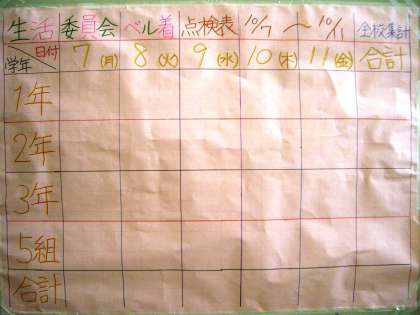 生活委員会 ベル着 点検表 10/7 〜 10/11 全校集計
日付 7(月) 8(火) 9(水) 10(木) 11(金) 合計
学年
1年
2年
3年
5組
合計